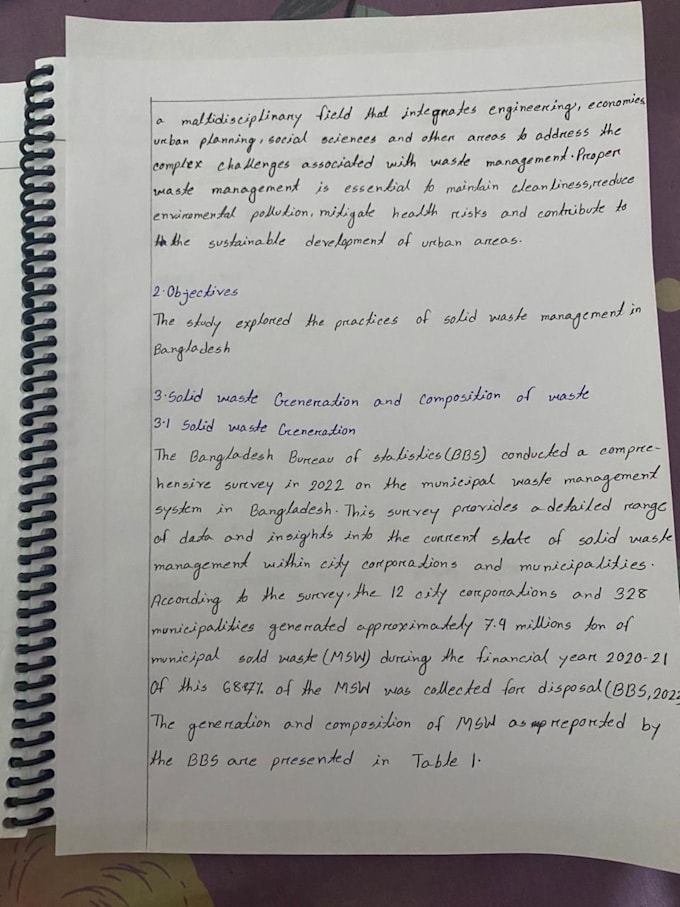 a maltidisciplinary field that integrates engineering, economics
urban planning, social sciences and other areas to address the
complex challenges associated with waste management. Proper
waste management is essential to maintain cleanliness, reduce
enviromental pollution, mitigate health risks and contribute to
the sustainable development of urban areas.
2. Objectives
The study explored the practices of solid waste management in
Bangladesh
3. Solid waste Generation and composition of waste
3.1 Solid waste Generation
The Bangladesh Bureau of statistics (BBS) conducted a compre-
hensive survey in 2022 on the municipal waste management
system in Bangladesh. This survey provides a detailed range
of data and insights into the current state of solid waste
management within city corporations and municipalities.
According to the survey, the 12 city corporations and 328
municipalities generated approximately 7.9 millions ton of
municipal sold waste (MSW) during the financial year 2020-21
Of this % of the MSW was collected for disposal (BBS, 202
The generation and composition of MSW as reported by
the BBS are presented in Table 1.